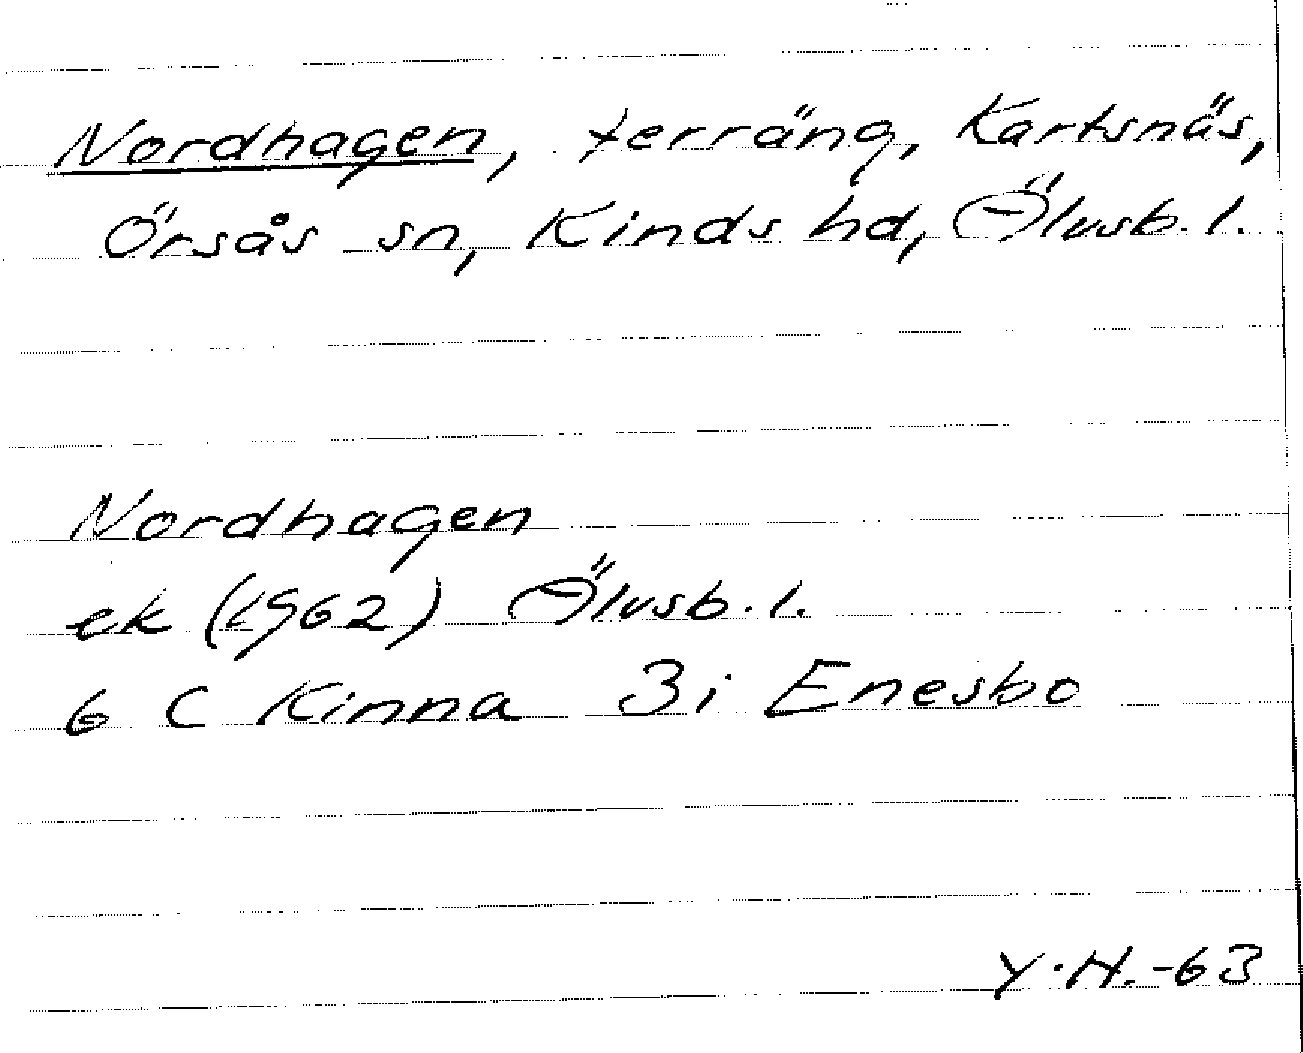 Nordhagen, terräng, Kartsnäs,
Örsås sn, Kinds hd, Älvsb. l.
Nordhagen
ek (1962) Älvsb. l.
6 C Kinna 3i Enesbo
Y.H.-63